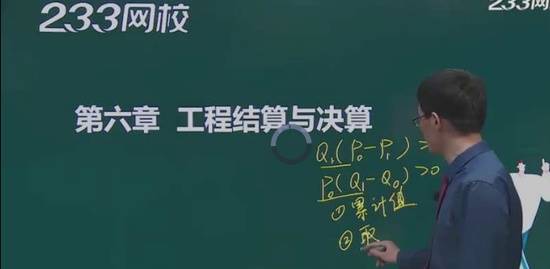 233网校
233网校
第六章 工程结算与决算
Q₁(P₀-P₁)>
P₀(Q₁-Q₀)>0
①累计值
②取